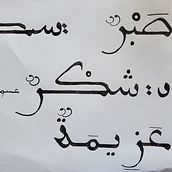 صَبْرٌ
د: شكْرٌ
عَزِيمَةٌ